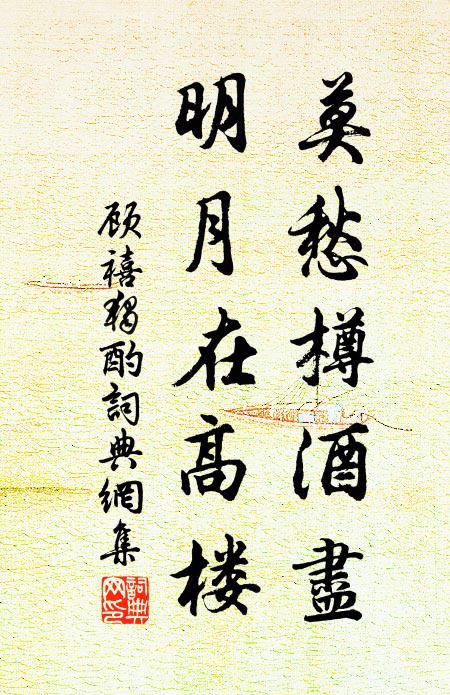 莫愁樽酒盡
明月在高楼
顾禧独酌詞典網集
詞典
网印